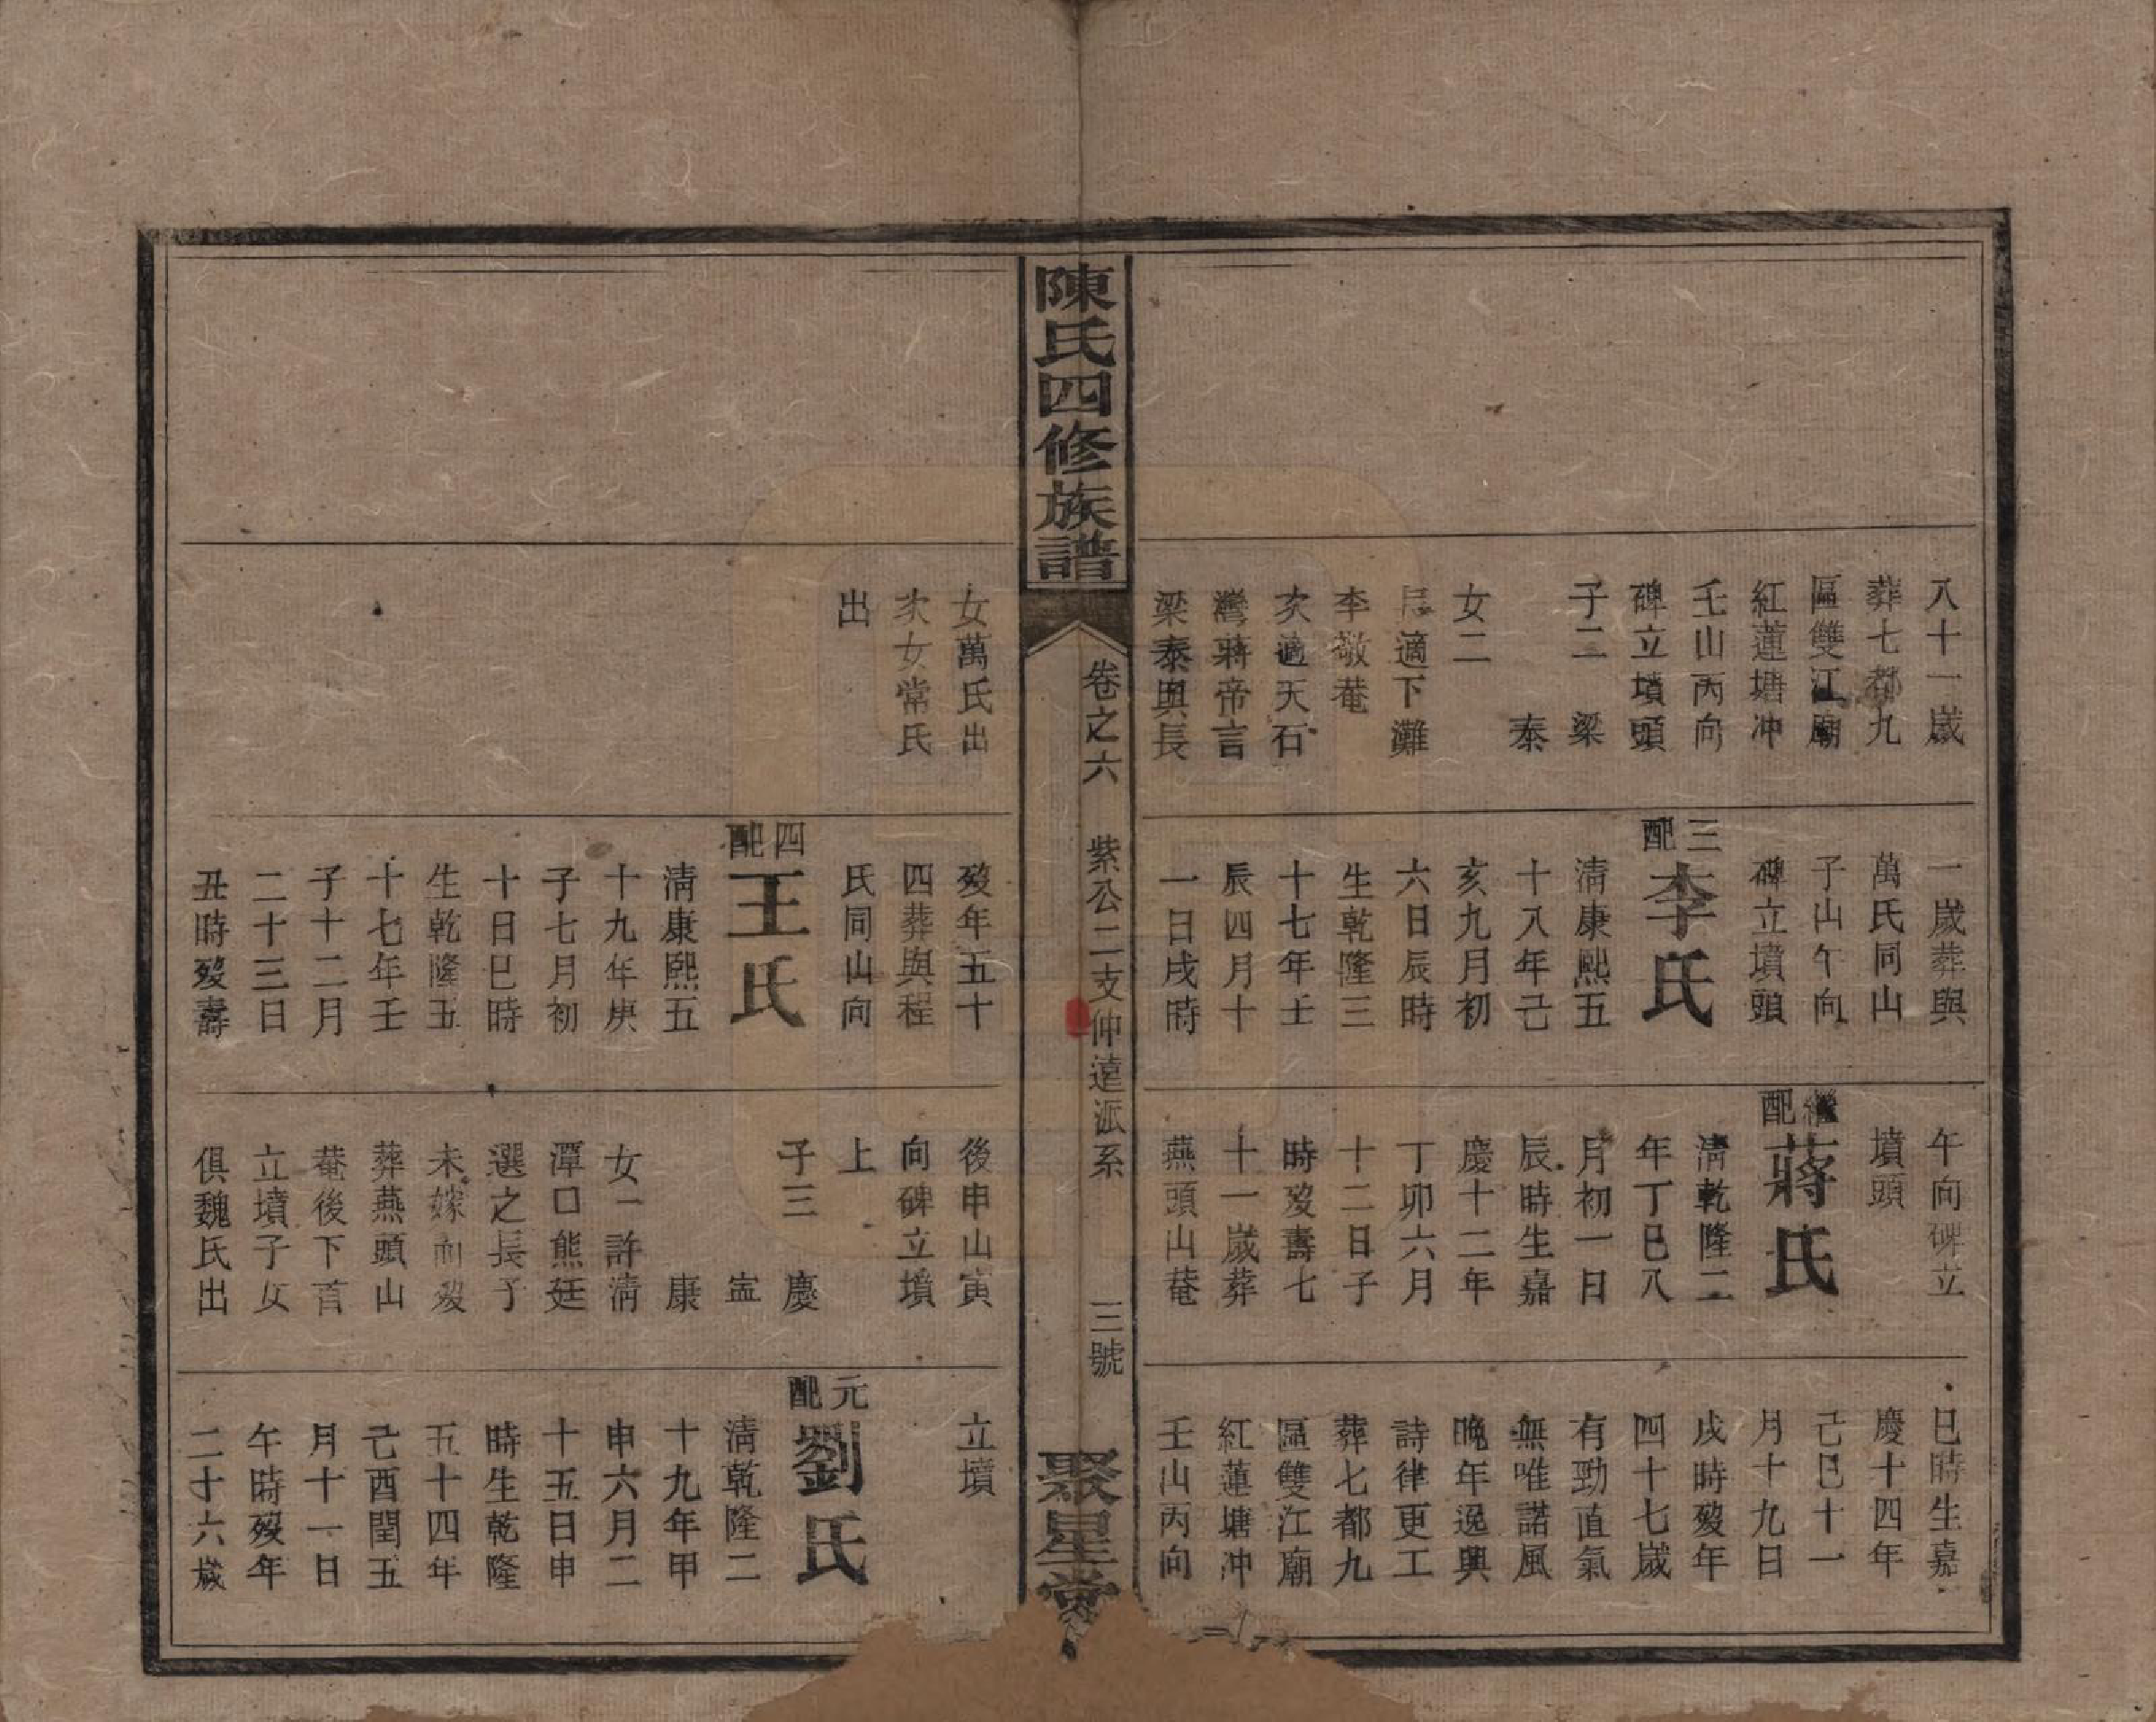 八十一歲
葬七都九
區雙江廟
紅蓮塘冲
壬山丙向
碑立墳頭
子二 梁
泰
女二
長適下灘
李敬菴
次適天石
灣蔣帝言
梁泰與長
一歲葬與
萬氏同山
子山午向
碑立墳頭
三配李氏
清康熙五
十八年己
亥九月初
六日辰時
生乾隆三
十七年壬
辰四月十
一日戌時
午向碑立
墳頭
繼配蔣氏
清乾隆二
年丁巳八
月初一日
辰時生嘉
慶十二年
丁卯六月
十二日子
時歿壽七
十一歲葬
燕頭山菴
巳時生嘉
慶十四年
己巳十一
月十九日
戌時歿年
四十七歲
有勁直氣
無唯諾風
晚年逸興
詩律更工
葬七都九
區雙江廟
紅蓮塘冲
壬山丙向
陳氏四修族譜
卷之六 紫公二支仲遠派系 三號
聚星堂
女萬氏出
次女常氏
出
歿年五十
四葬與程
氏同山向
四配王氏
清康熙五
十九年庚
子七月初
十日巳時
生乾隆五
十七年壬
子十二月
二十三日
丑時歿壽
後申山寅
向碑立墳
上
子三 慶
寍
康
女一許清
潭口熊廷
選之長子
未嫁而歿
葬燕頭山
菴後下首
立墳子女
俱魏氏出
立墳
元配劉氏
清乾隆二
十九年甲
申六月二
十五日申
時生乾隆
五十四年
己酉閏五
月十一日
午時歿年
二十六歲